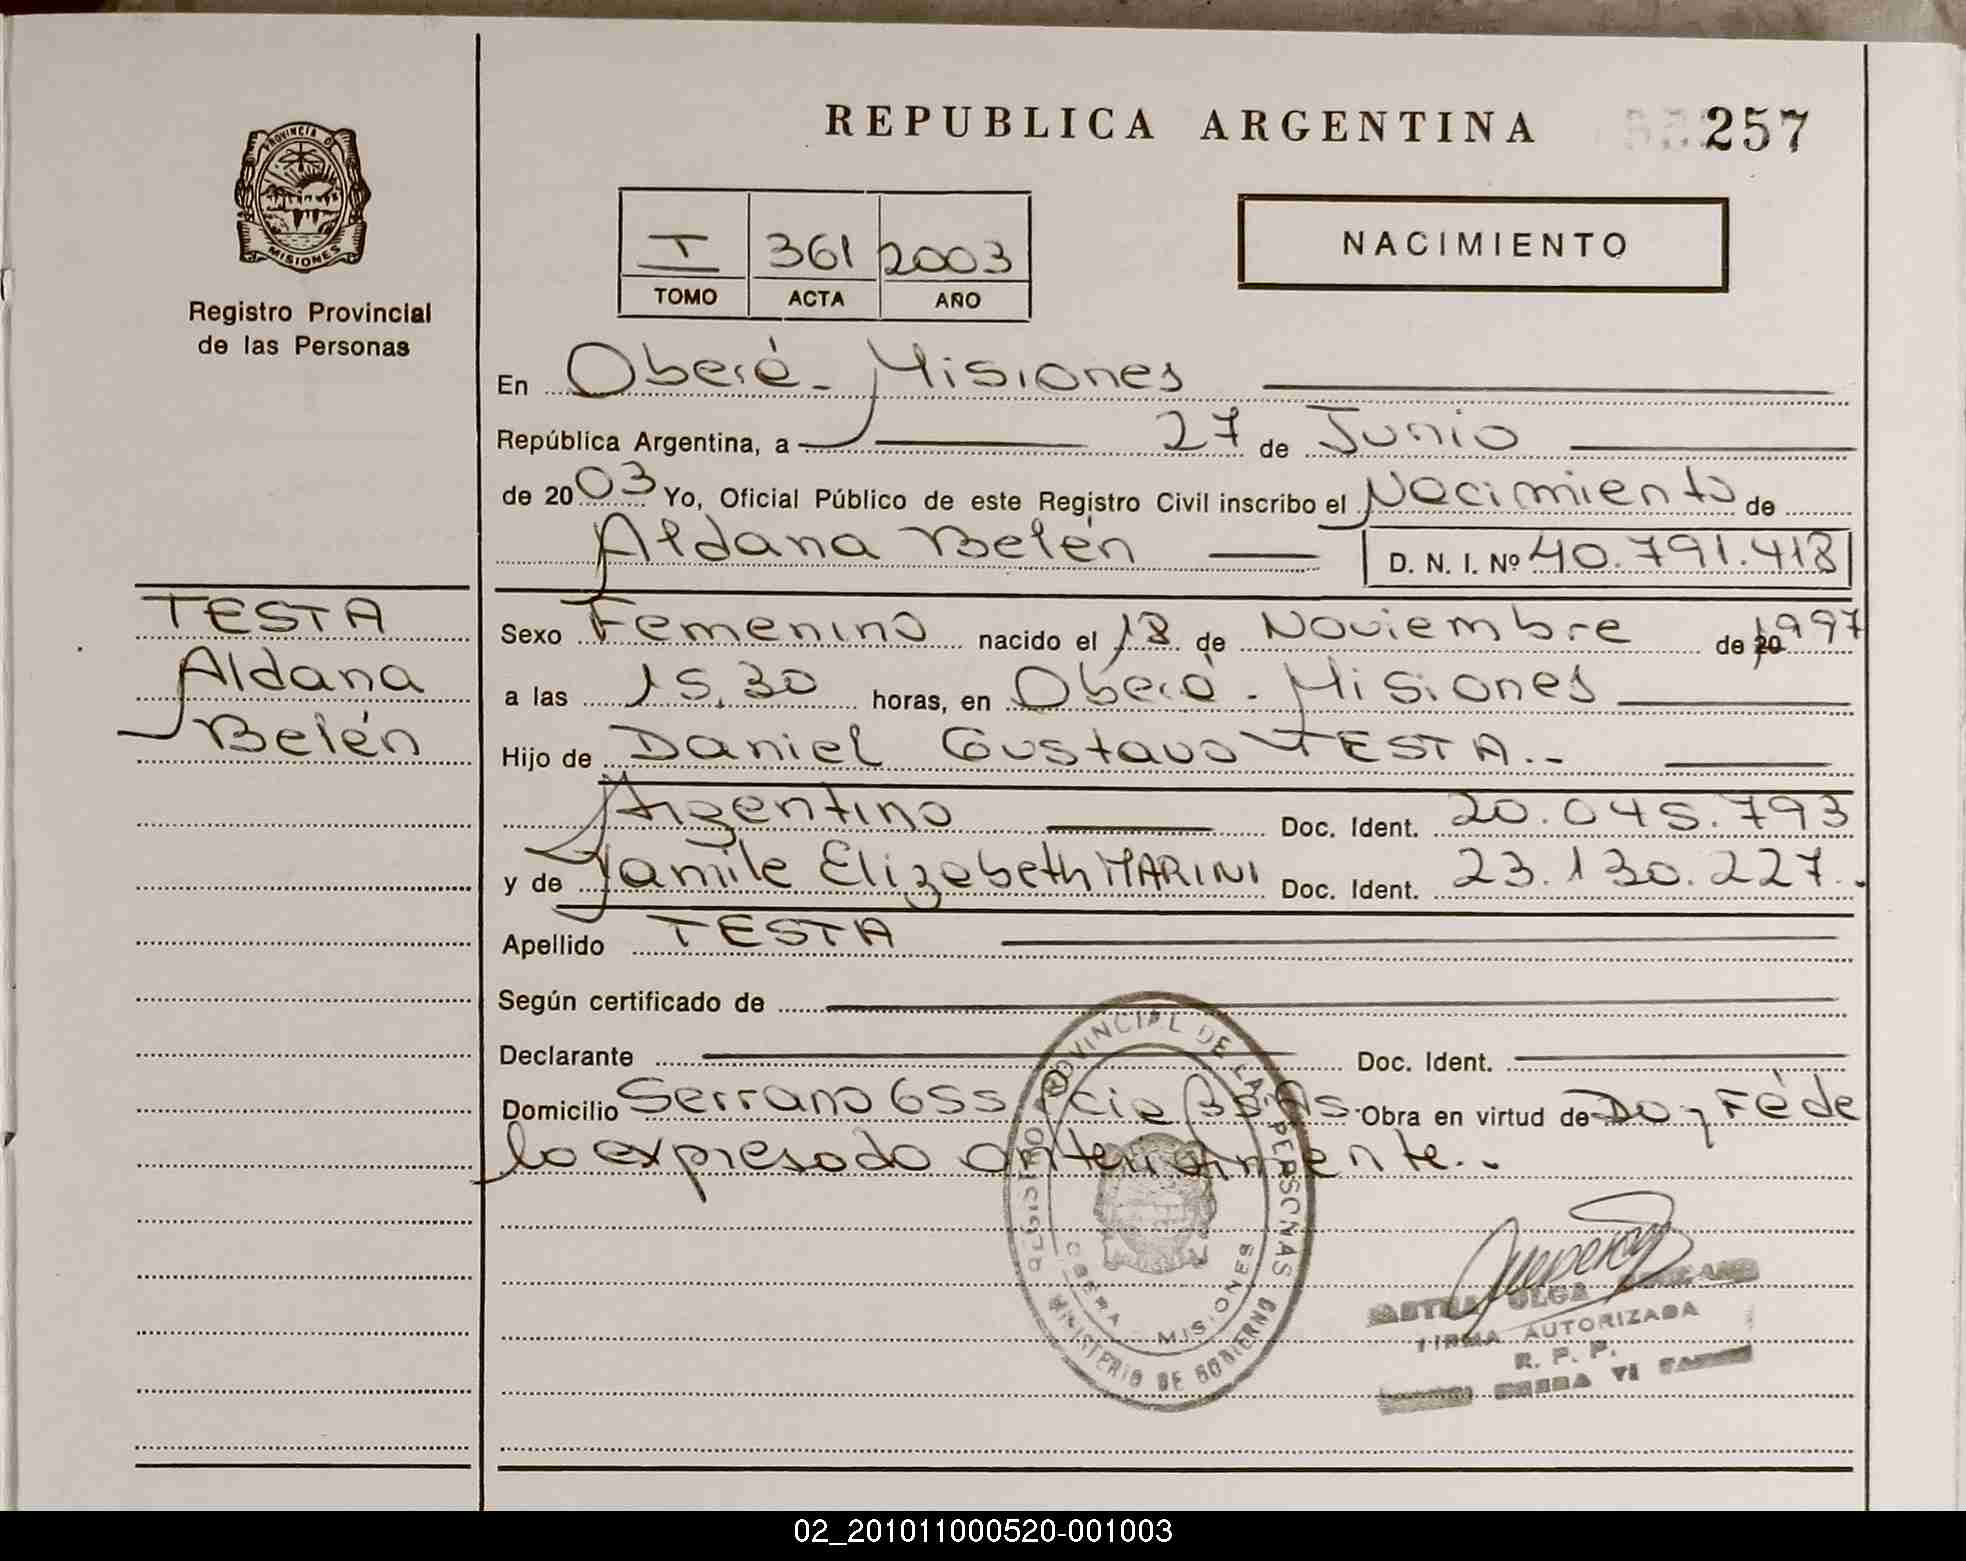 REPUBLICA ARGENTINA
257
PROVINCIA DE
MISIONES
Registro Provincial
de las Personas
I 361 2003
TOMO ACTA AÑO
NACIMIENTO
En Oberá - Misiones
República Argentina, a 27 de Junio
de 2003 Yo, Oficial Público de este Registro Civil inscribo el Nacimiento de
Aldana Belén D. N. I. Nº 40.791.418
TESTA
Aldana
Belén
Sexo Femenino nacido el 18 de Noviembre de 1997
a las 15.30 horas, en Oberá - Misiones
Hijo de Daniel Gustavo TESTA.-
Argentino Doc. Ident. 20.045.793
y de Yamile Elizabeth MARINI Doc. Ident. 23.130.227.
Apellido TESTA
Según certificado de
Declarante Doc. Ident.
Domicilio Serrano 655 Pcia Bs As. Obra en virtud de Doy Fé de
lo expresado anteriormente..
REGISTRO PROVINCIAL DE LAS PERSONAS
OBERA - MISIONES
MINISTERIO DE GOBIERNO
OLGA
FIRMA AUTORIZADA
R. P. P.
02_201011000520-001003